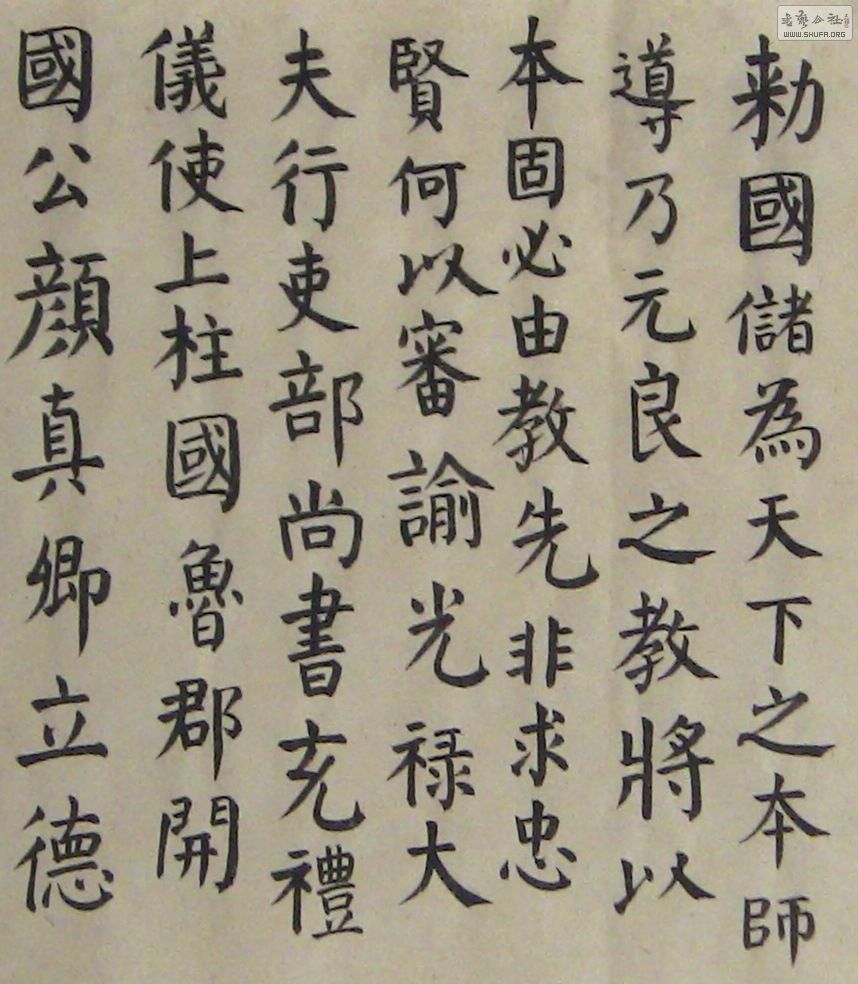 勑國儲為天下之本師
導乃元良之教將以
本固必由教先非求忠
賢何以審諭光禄大
夫行吏部尚書充禮
儀使上柱國魯郡開
國公顔真卿立德
WWW.SHUFA.ORG